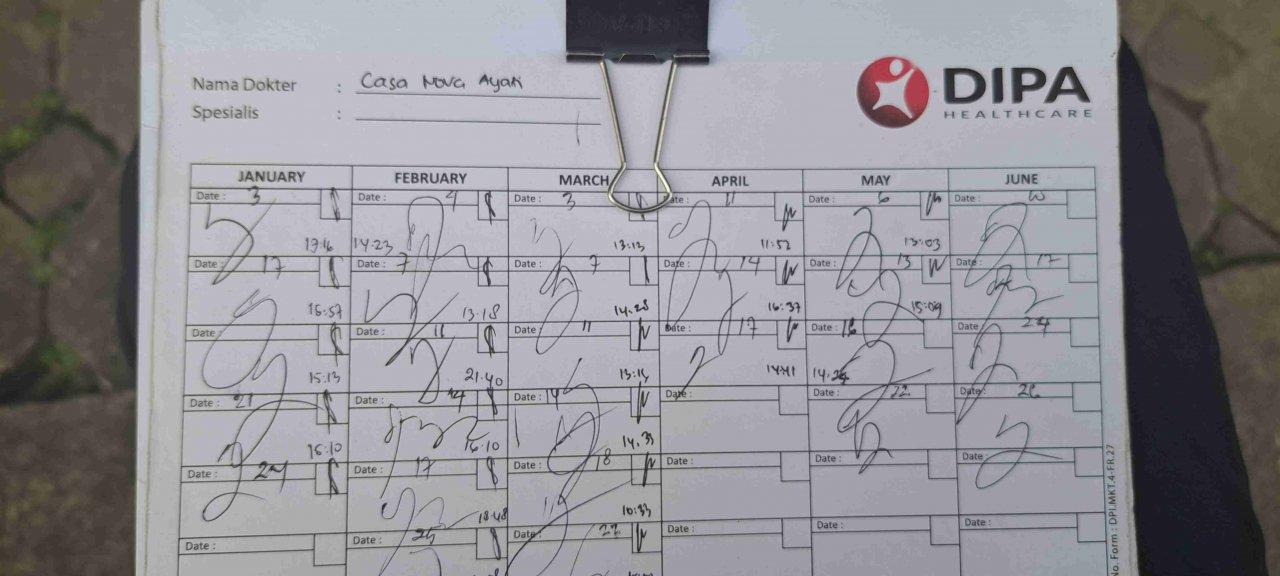 Nama Dokter : Casa Nova Ayah
Spesialis :
DIPA
HEALTHCARE
JANUARY FEBRUARY MARCH APRIL MAY JUNE
Date : 3 Date : 4 Date : 3 Date : 11 Date : 6 Date : 10
17:16 14:23 13:13 11:52 13:03
Date : 17 Date : 7 Date : 7 Date : 14 Date : 13 Date : 17
16:57 13:18 14:28 16:37 15:09
Date : Date : 11 Date : 11 Date : 17 Date : Date : 24
15:13 21:40 13:15 14:41
Date : 21 Date : 14 Date : 14 Date : Date : 22 Date : 26
16:10 16:10 14.33
Date : 24 Date : 17 Date : 18 Date : Date : Date :
18:48 10:33
Date : Date : 25 Date : 22 Date : Date : Date :
No. Form : DPI.MKT.4-FR.27